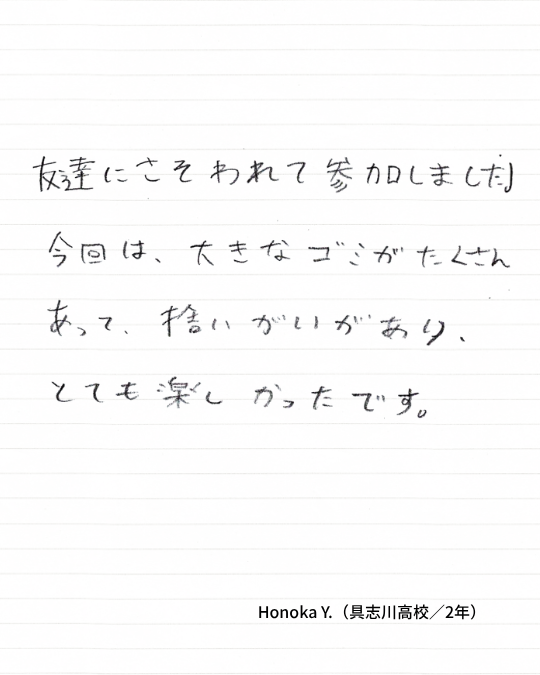 友達にさそわれて参加しました」
今回は、大きなゴミがたくさん
あって、捨いがいがあり、
とても楽しかったです。
Honoka Y.（具志川高校／2年）